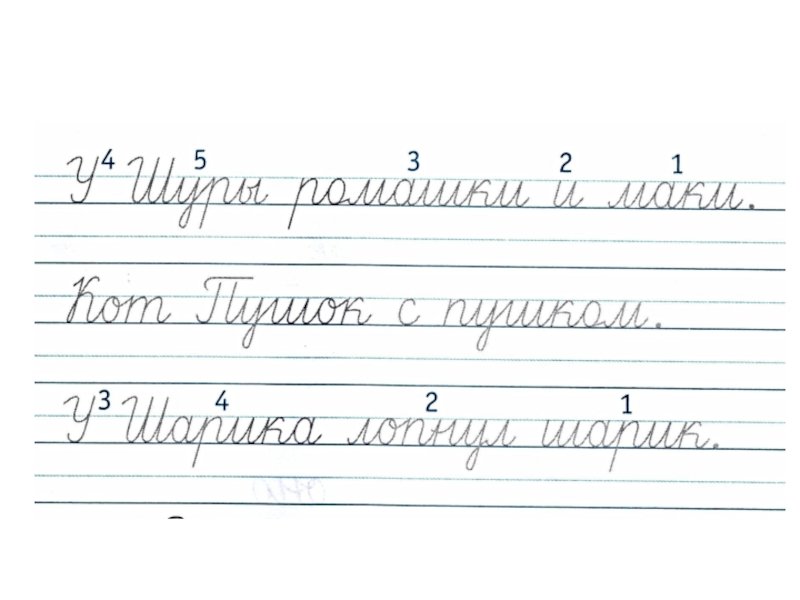 4 5 3 2 1
У Шуры ромашки и маки.
Кот Пушок с пушком.
3 4 2 1
У Шарика лопнул шарик.